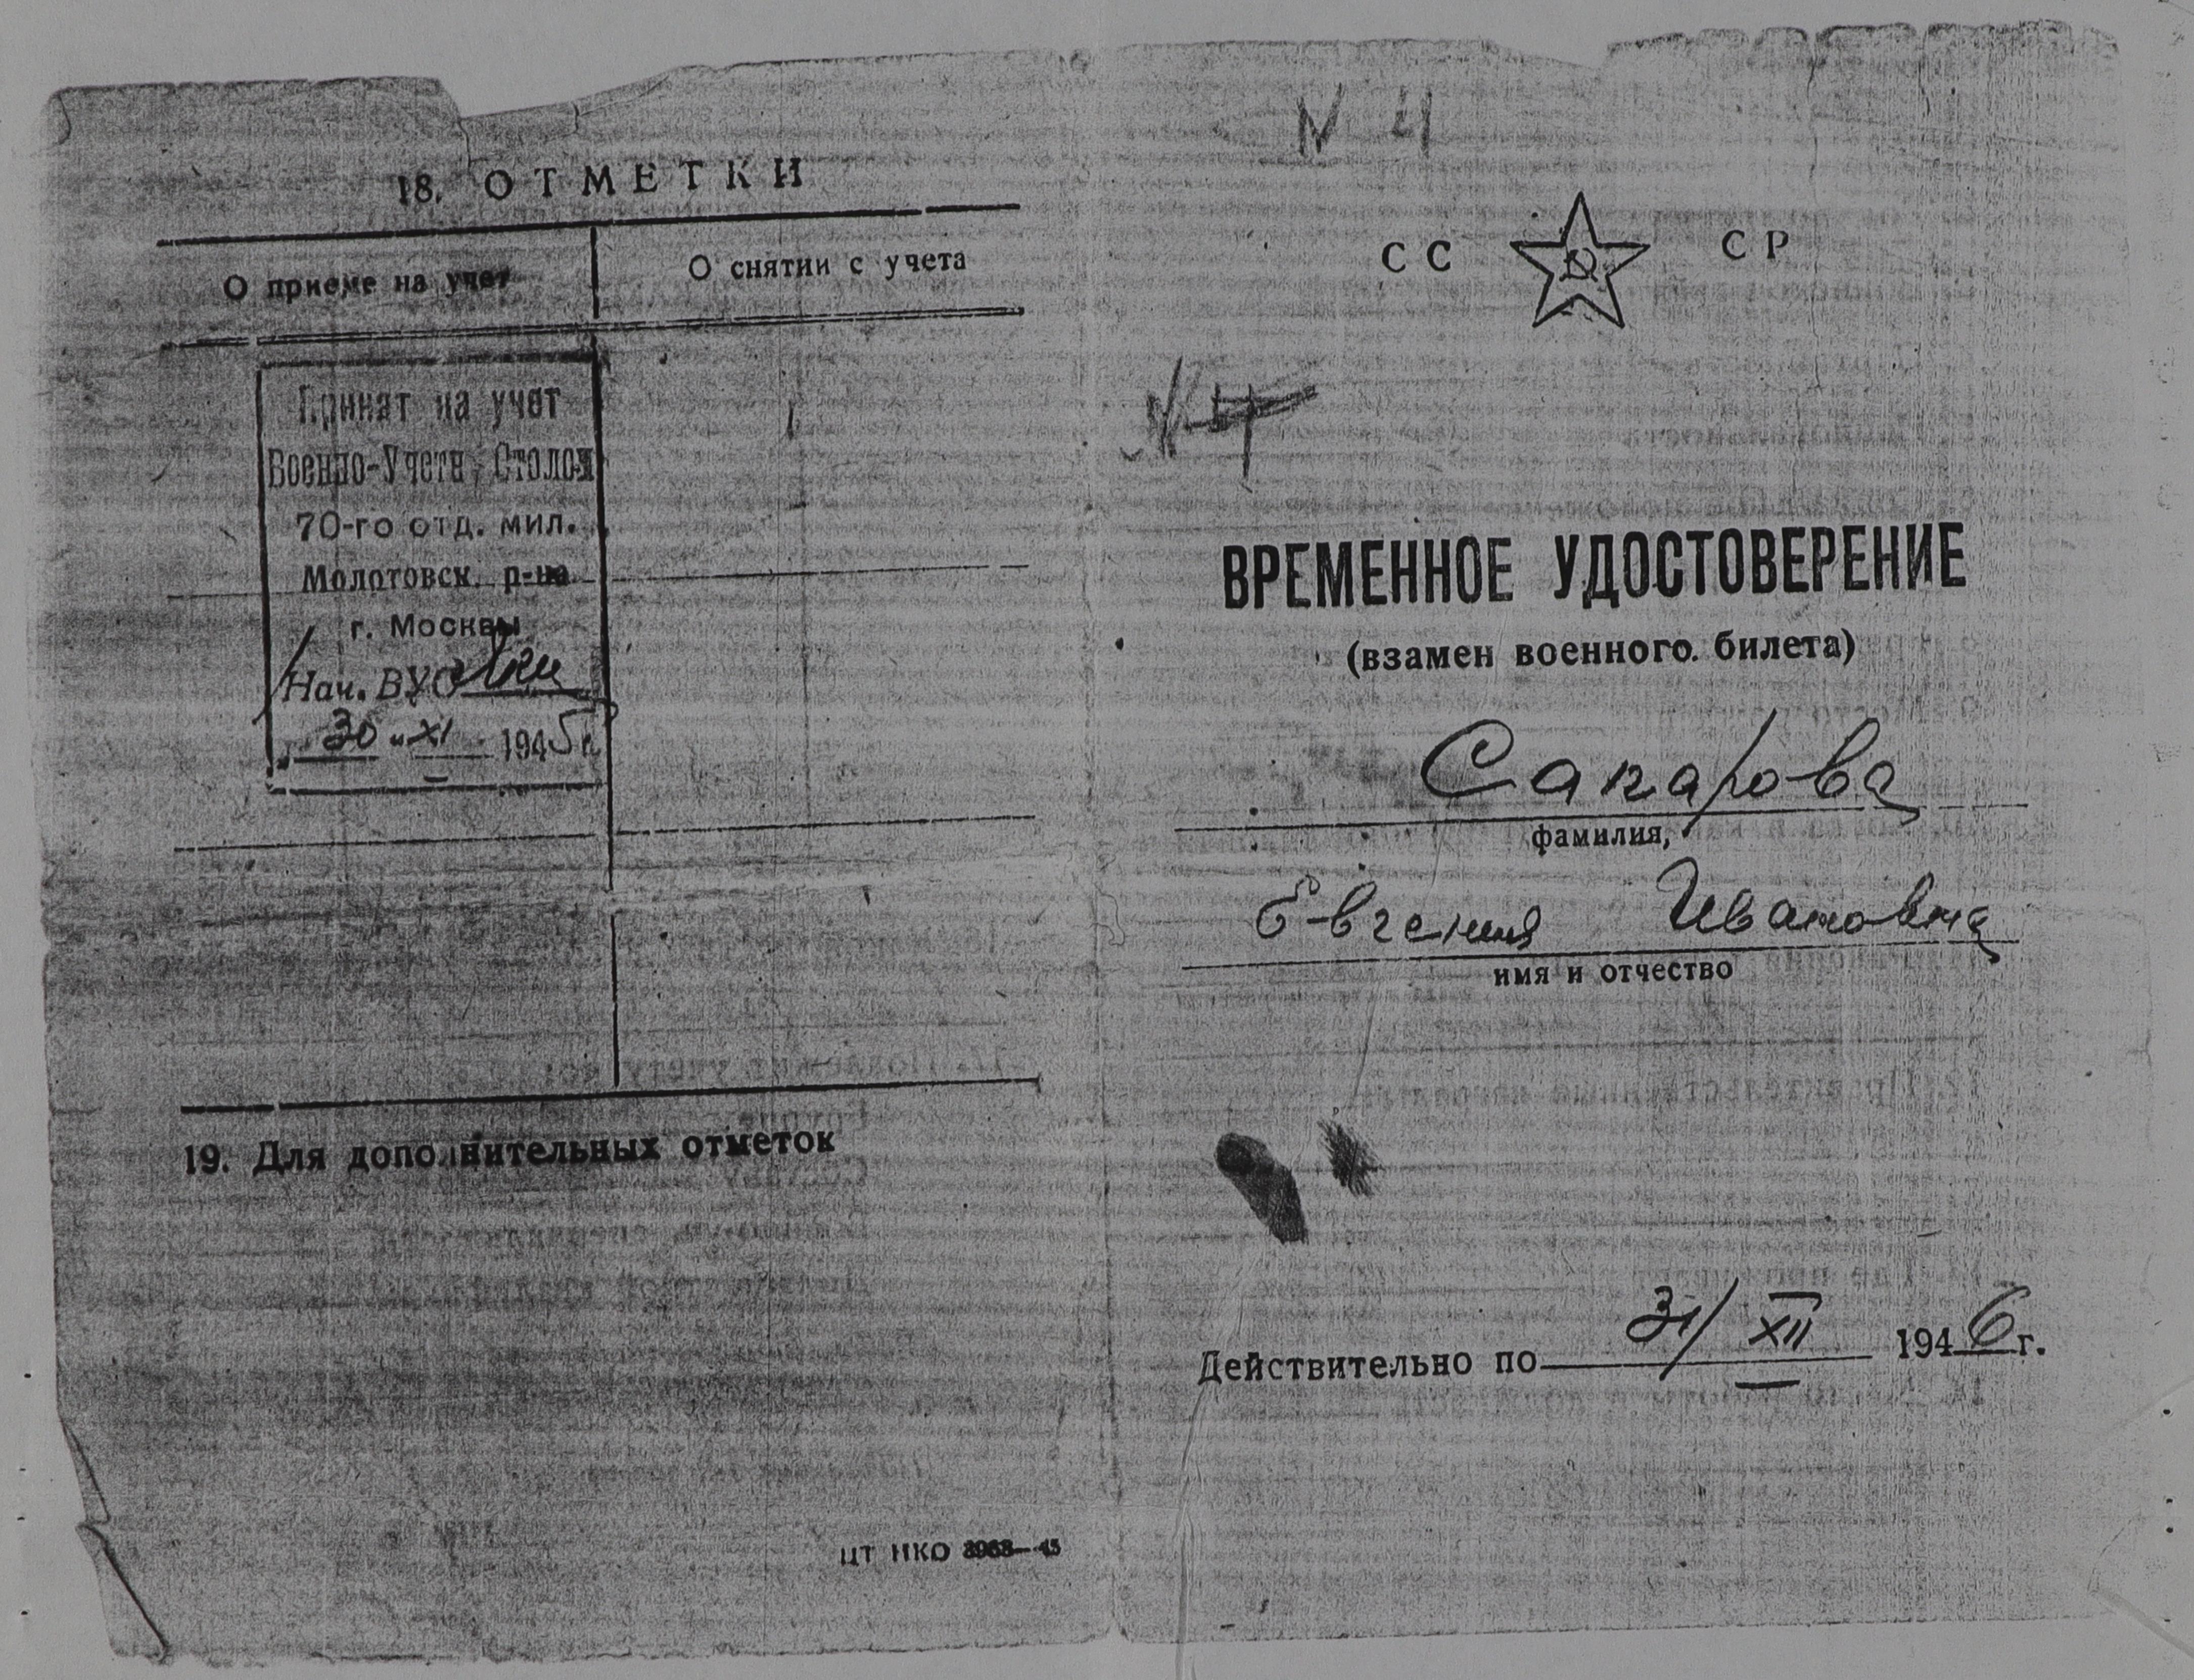 18. ОТМЕТКИ
О приеме на учет
О снятии с учета
Принят на учет
Военно-Учетн. Столом
70-го отд. мил.
Молотовск. р-на
г. Москвы
Нач. ВУС
„30" XI 1945 г.
19. Для дополнительных отметок
ЦТ НКО 3963—45
N 4
СС СР
N 4
ВРЕМЕННОЕ УДОСТОВЕРЕНИЕ
(взамен военного билета)
Сапарова
фамилия,
Евгения Ивановна
имя и отчество
Действительно по 31/XII 1946 г.